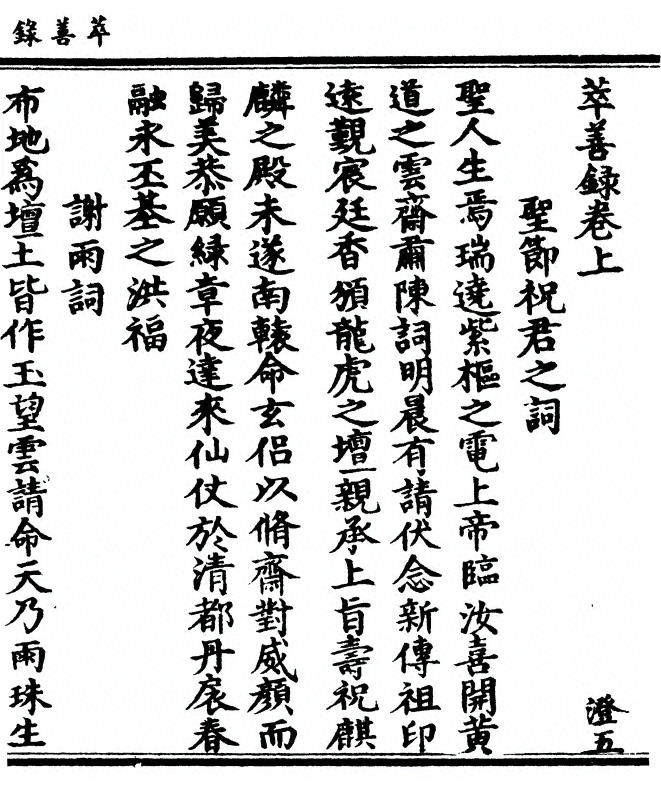 萃善錄
萃善錄卷上
澄五
聖節祝君之詞
聖人生焉瑞遶紫樞之電上帝臨汝喜開黃
道之雲齋肅陳詞明晨有請伏念新傳祖印
遠覲宸廷香頒龍虎之壇親承上旨壽祝麒
麟之殿未遂南轅命玄侣以脩齋對威顏而
歸美恭願緑章夜達來仙仗於清都丹扆春
融永丕基之洪福
謝雨詞
布地爲壇土皆作玉望雲請命天乃雨珠生